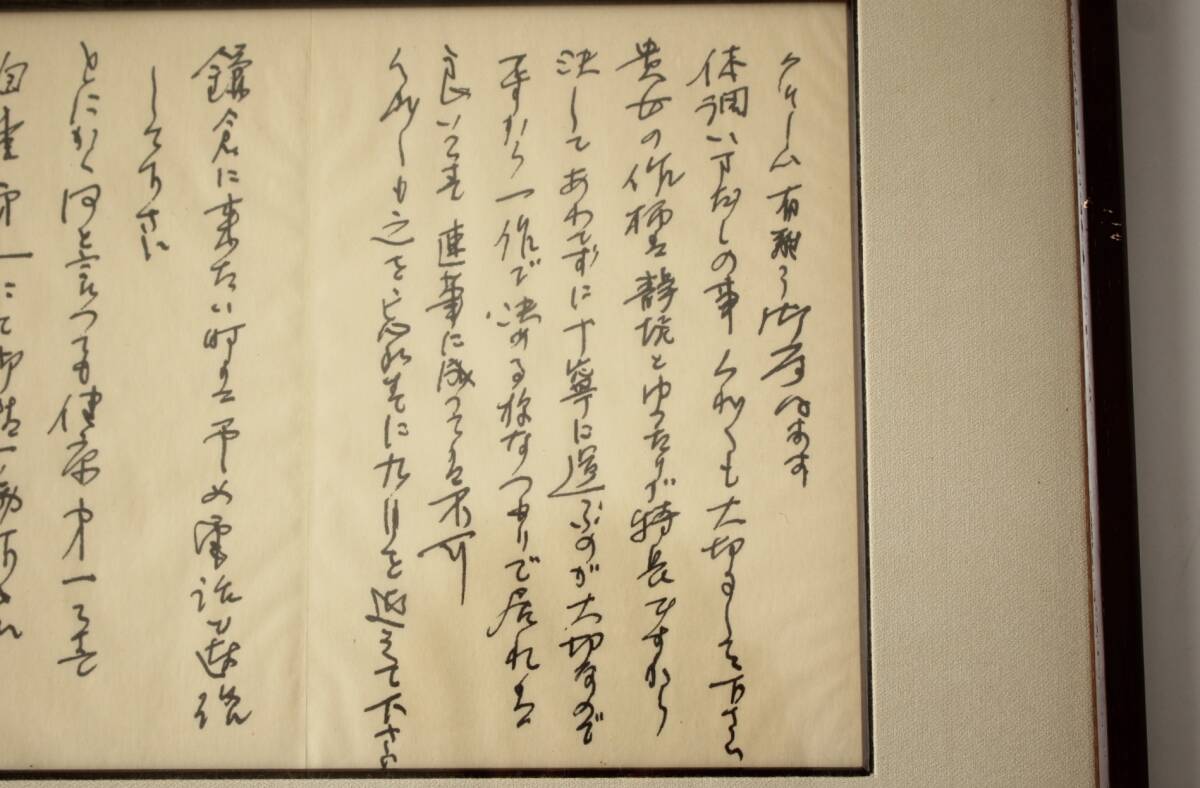 クリーム有難う御座います
体調いまだしの事 くれぐれも大切にして下さい
貴女の作柄は静境とゆったりが特長ですから
決してあわてずに丁寧に運ぶのが大切なので
すから一作で決める様なつもりで居れば
良いです 連筆に成っては不可
くれぐれも之を忘れずに九月を迎えて下さい
鎌倉に来たい時は予め電話で連絡
して下さい
とにかく何と言っても健康第一です
自重第一にて御精励下され